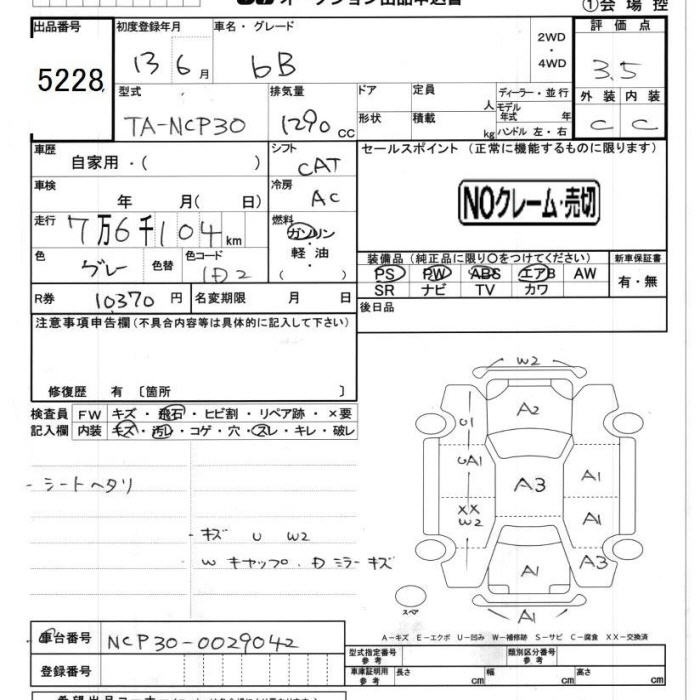 オークション出品申込書
①会場控
出品番号
5228
初度登録年月
13 6 月
車名・グレード
bB
2WD
・
4WD
評価点
3.5
型式
TA-NCP30
排気量
1290 CC
ドア
定員
人
形状
積載
kg
ディーラー・並行
モデル年式 年
ハンドル 左・右
外装 内装
C C
車歴
自家用・( )
シフト
CAT
セールスポイント (正常に機能するものに限ります)
NOクレーム・売切
車検
年 月( 日)
冷房
AC
走行
7万6千104km
燃料
ガソリン
・
軽油
( )
色
グレー
色替
色コード
1D2
装備品 (純正品に限り〇をつけてください)
PS PW ABS エアB AW
SR ナビ TV カワ
新車保証書
有・無
R券 10,370 円
名変期限 月 日
後日品
注意事項申告欄 (不具合内容等は具体的に記入して下さい)
修復歴 有 〔箇所 〕
検査員記入欄
FW キズ・飛石・ヒビ割・リペア跡・×要
内装 キズ・汚レ・コゲ・穴・スレ・キレ・破レ
-シートヘタリ
-キズ U W2
W キャップ. ミラーキズ
W2
A2
U1
UA1
A1
A3
XX
W2
A1
A3
A1
A1
スペア
A-キズ E-エクボ U-凹み W-補修跡 S-サビ C-腐食 XX-交換済
車台番号
NCP30-0029042
登録番号
型式指定番号
参考
類別区分番号
参考
車庫証明用
参考
長さ cm
幅 cm
高さ cm